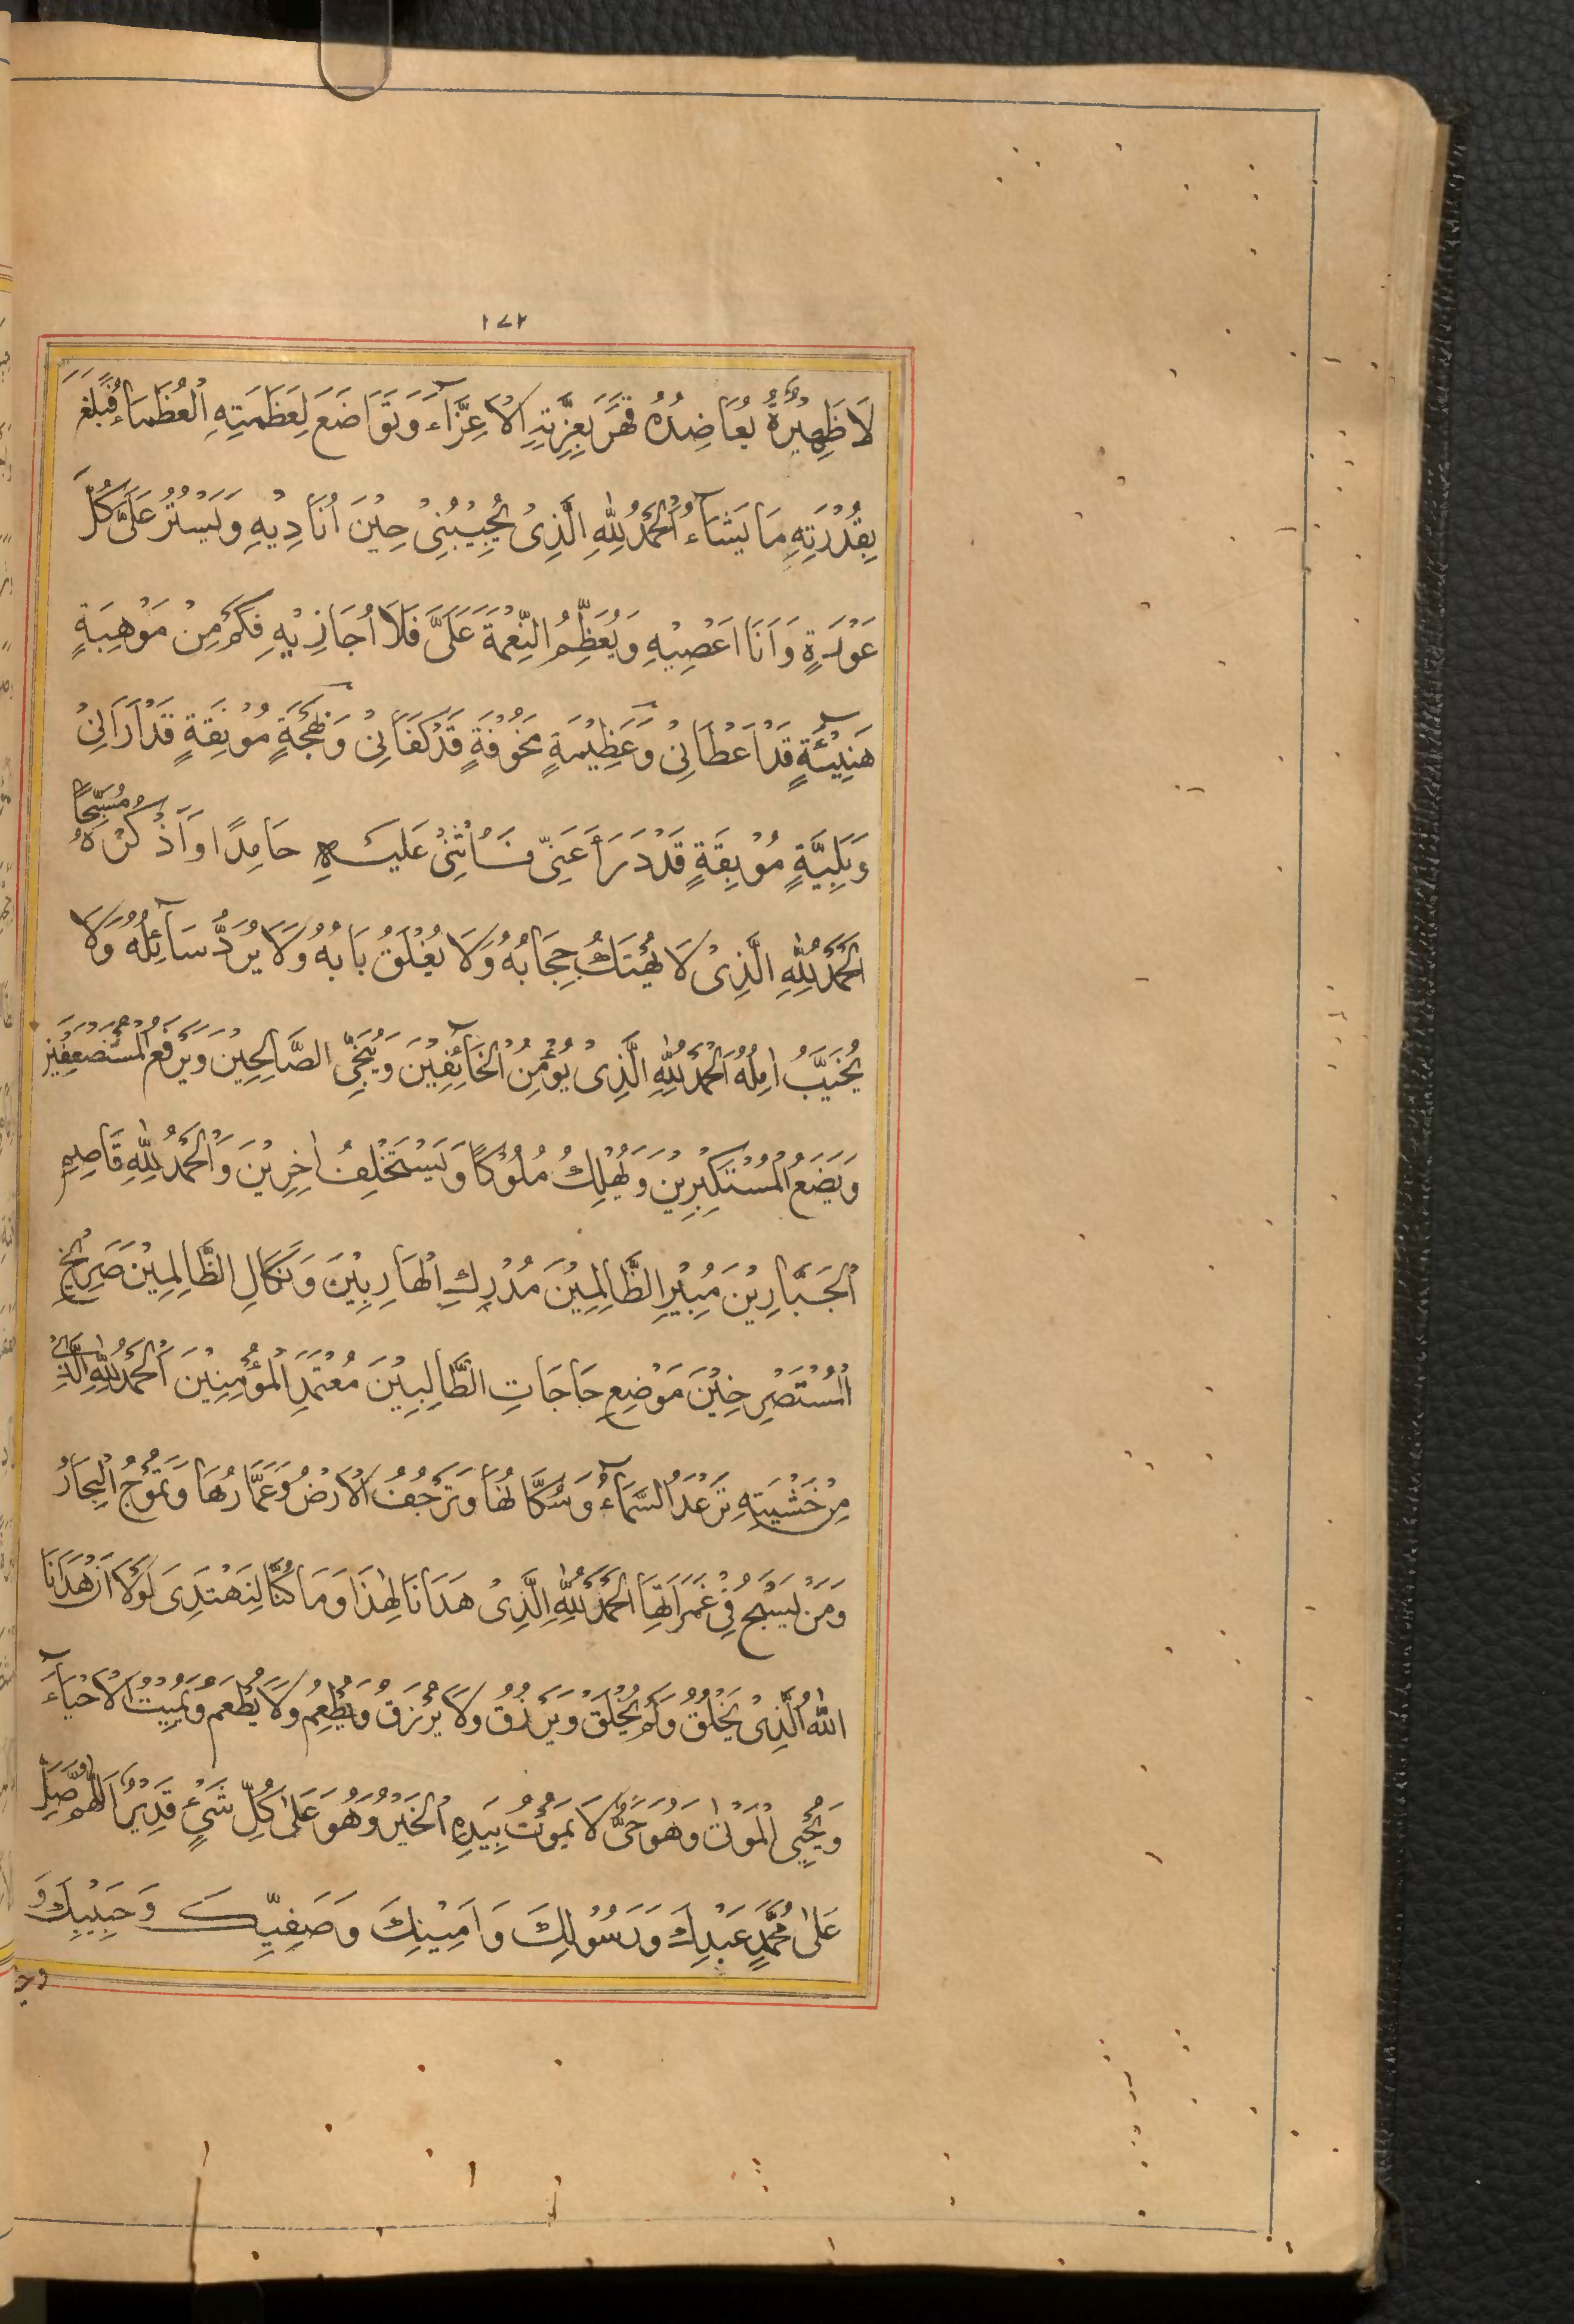 ١٧٢
لَا ظَهِيْرَةٌ يُعَاضِدُهُ قَهَرَ بِعِزَّتِهِ الْاَعِزَّآءَ وَتَوَاضَعَ لِعَظَمَتِهِ الْعُظَمَاءُ فَبَلَغَ
بِقُدْرَتِهِ مَا يَشَآءُ اَلْحَمْدُ لِلّٰهِ الَّذِىْ يُجِيْبُنِىْ حِيْنَ اُنَادِيْهِ وَيَسْتُرُ عَلَىَّ كُلَّ
عَوْرَةٍ وَاَنَا اَعْصِيْهِ وَيُعَظِّمُ النِّعْمَةَ عَلَىَّ فَلَا اُجَازِيْهِ فَكَمْ مِنْ مَوْهِبَةٍ
هَنِيْٓئَةٍ قَدْ اَعْطَانِىْ وَعَظِيْمَةٍ مَخُوْفَةٍ قَدْ كَفَانِىْ وَبَهْجَةٍ مُوْنِقَةٍ قَدْ اَرَانِىْ
وَبَلِيَّةٍ مُوْبِقَةٍ قَدْ دَرَأَ عَنِّى فَاُثْنِىْ عَلَيْهِ حَامِدًا وَاَذْكُرُهُ مُسَبِّحًا
اَلْحَمْدُ لِلّٰهِ الَّذِىْ لَا يُهْتَكُ حِجَابُهُ وَلَا يُغْلَقُ بَابُهُ وَلَا يُرَدُّ سَآئِلُهُ وَلَا
يُخَيَّبُ اٰمِلُهُ اَلْحَمْدُ لِلّٰهِ الَّذِىْ يُؤْمِنُ الْخَآئِفِيْنَ وَيُنَجِّى الصَّالِحِيْنَ وَيَرْفَعُ الْمُسْتَضْعَفِيْنَ
وَيَضَعُ الْمُسْتَكْبِرِيْنَ وَيُهْلِكُ مُلُوْكًا وَيَسْتَخْلِفُ اٰخَرِيْنَ وَالْحَمْدُ لِلّٰهِ قَاصِمِ
الْجَبَّارِيْنَ مُبِيْرِ الظَّالِمِيْنَ مُدْرِكِ الْهَارِبِيْنَ وَنَكَالِ الظَّالِمِيْنَ صَرِيْخِ
الْمُسْتَصْرِخِيْنَ مَوْضِعِ حَاجَاتِ الطَّالِبِيْنَ مُعْتَمَدِ الْمُؤْمِنِيْنَ اَلْحَمْدُ لِلّٰهِ الَّذِىْ
مِنْ خَشْيَتِهِ تَرْعَدُ السَّمَآءُ وَسُكَّانُهَا وَتَرْجُفُ الْاَرْضُ وَعُمَّارُهَا وَتَمُوْجُ الْبِحَارُ
وَمَنْ يَسْبَحُ فِىْ غَمَرَاتِهَا اَلْحَمْدُ لِلّٰهِ الَّذِىْ هَدَانَا لِهٰذَا وَمَا كُنَّا لِنَهْتَدِىَ لَوْلَا اَنْ هَدَانَا
اللّٰهُ الَّذِىْ يَخْلُقُ وَلَمْ يُخْلَقْ وَيَرْزُقُ وَلَا يُرْزَقُ وَيُطْعِمُ وَلَا يُطْعَمُ وَيُمِيْتُ الْاَحْيَآءَ
وَيُحْيِى الْمَوْتٰى وَهُوَ حَىٌّ لَا يَمُوْتُ بِيَدِهِ الْخَيْرُ وَهُوَ عَلٰى كُلِّ شَىْءٍ قَدِيْرٌ اَللّٰهُمَّ صَلِّ
عَلٰى مُحَمَّدٍ عَبْدِكَ وَرَسُوْلِكَ وَاَمِيْنِكَ وَصَفِيِّكَ وَحَبِيْبِكَ وَ